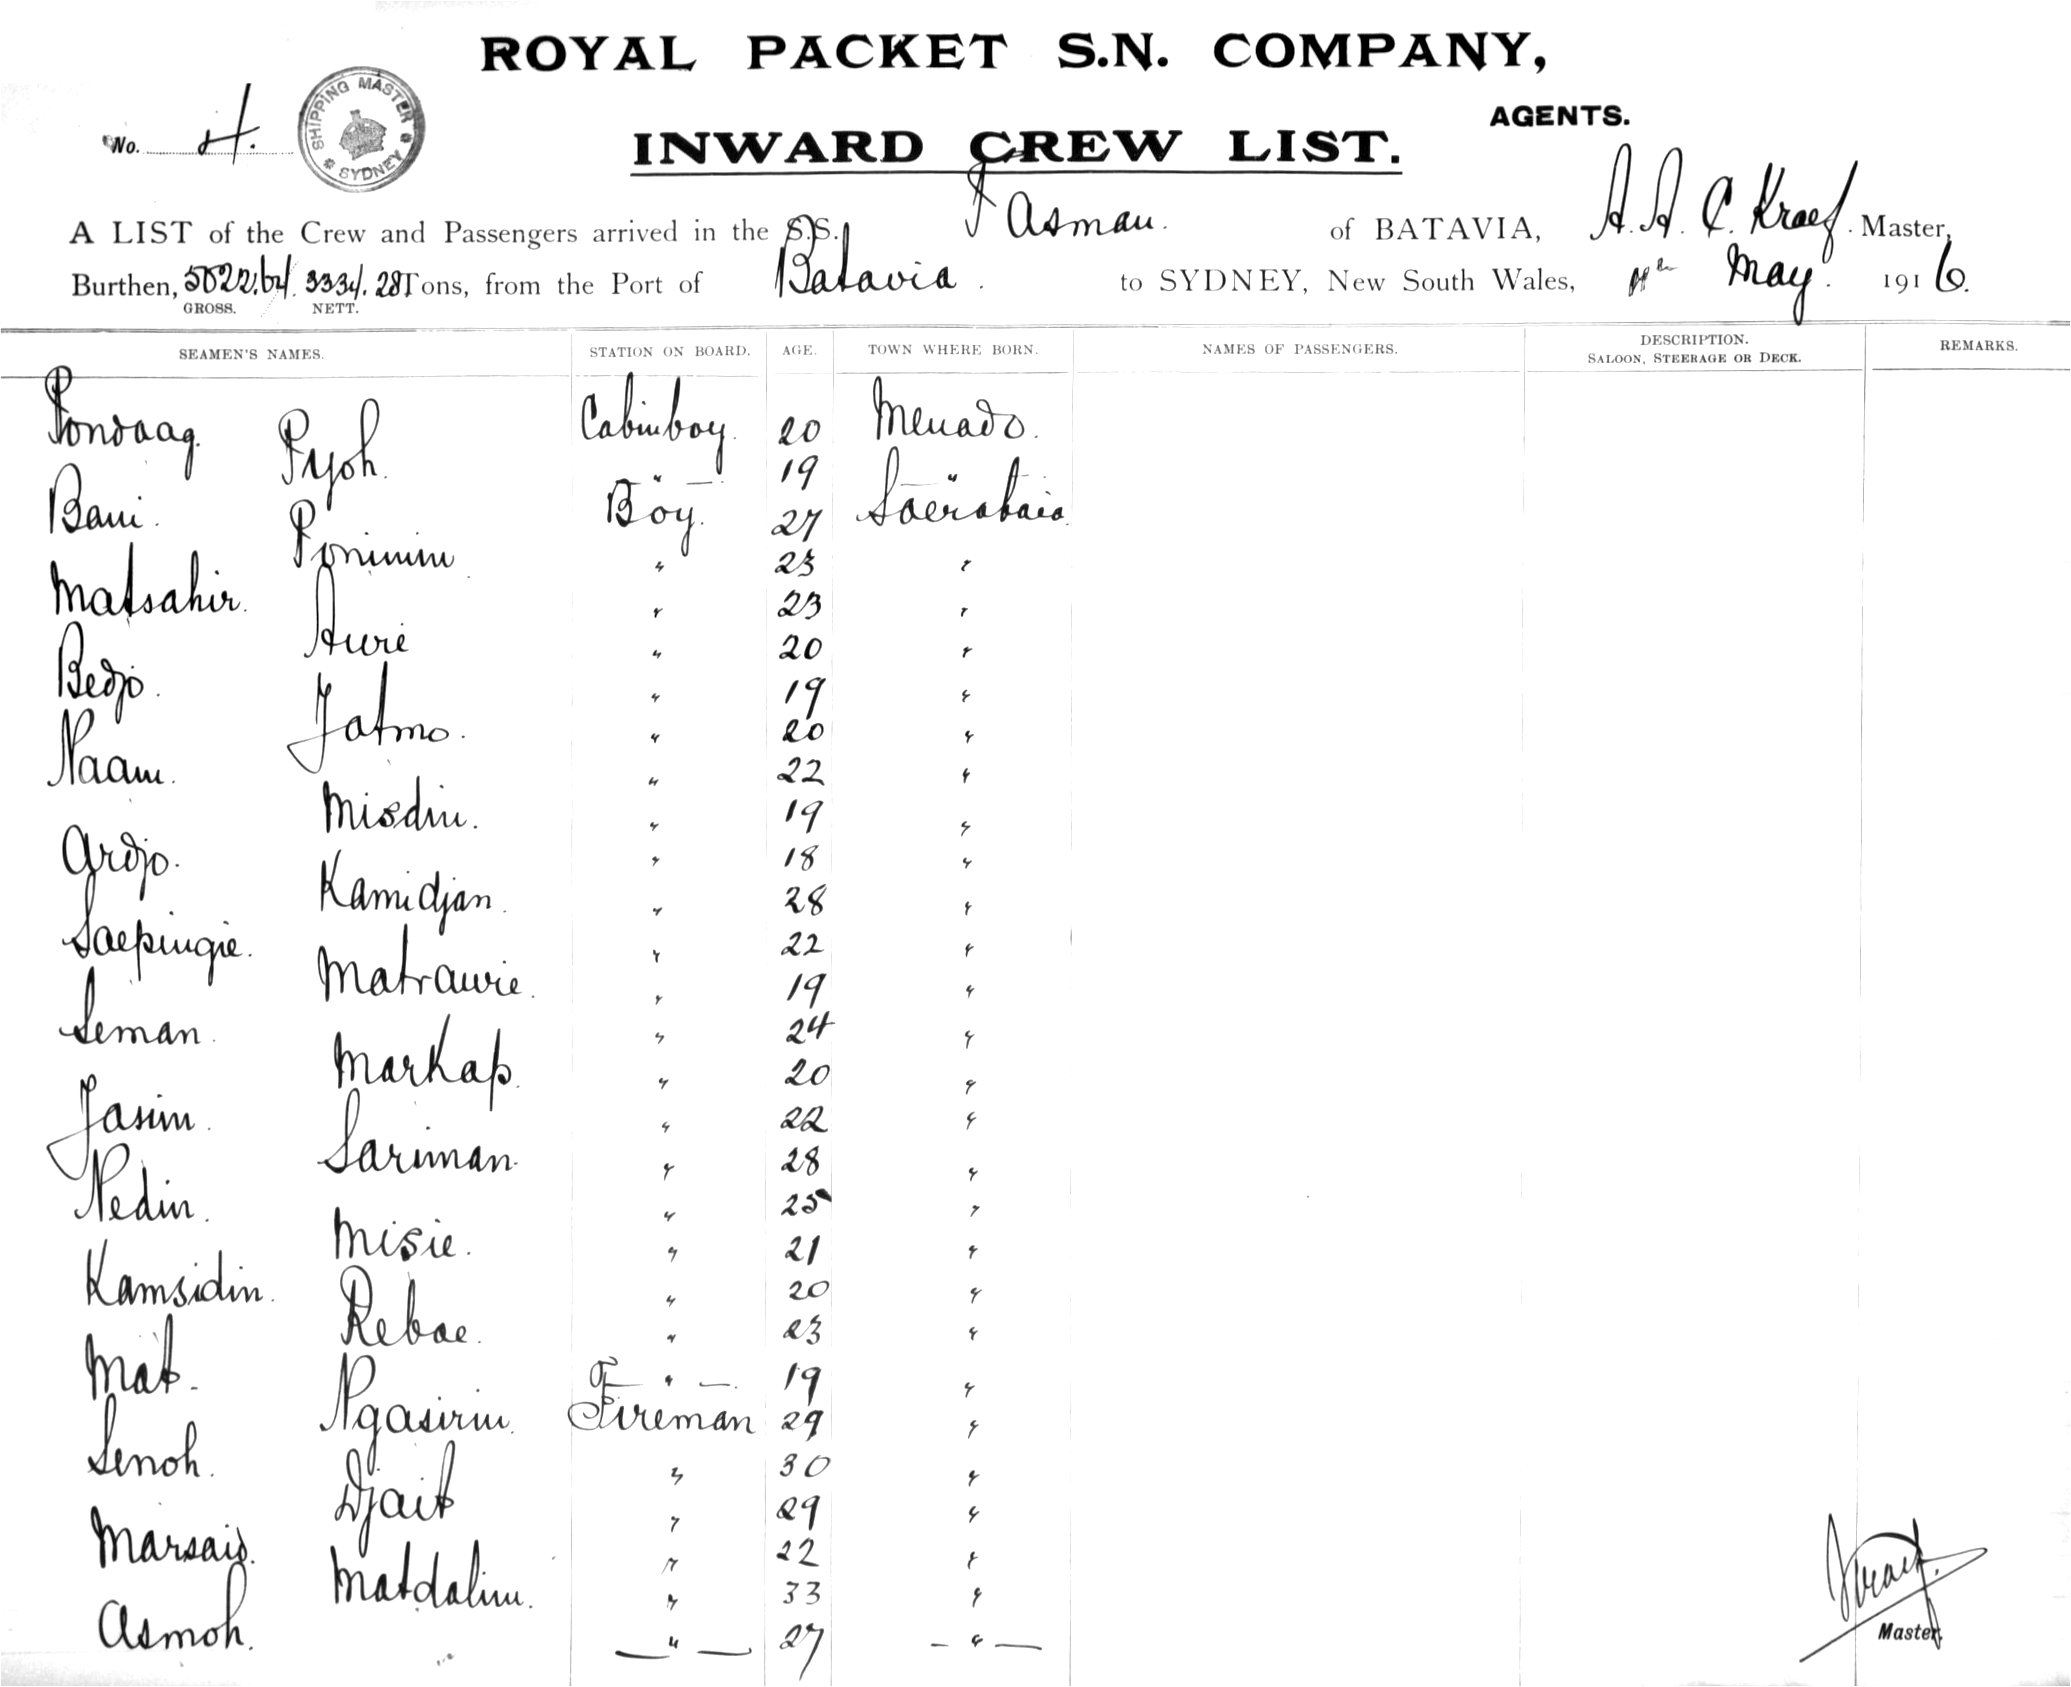 ROYAL PACKET S.N. COMPANY,
AGENTS.
No. 4.
SHIPPING MASTER SYDNEY
INWARD CREW LIST.
A LIST of the Crew and Passengers arrived in the S.S. Tasman. of BATAVIA, A. A. C. Kraef. Master,
Burthen, 5022,64. 3334.28 Tons, from the Port of Batavia. to SYDNEY, New South Wales, May. 1916.
GROSS. NETT.
SEAMEN'S NAMES. STATION ON BOARD. AGE. TOWN WHERE BORN. NAMES OF PASSENGERS. DESCRIPTION. SALOON, STEERAGE OR DECK. REMARKS.
Pondaag. Cabinboy. 20 Menado.
Pijoh. — " — 19 — " —
Bani. Boy. 27 Soerabaia
Ponimin " 23 "
Matsahir. " 23 "
Awie " 20 "
Bedjo. " 19 "
Jatmo. " 20 "
Naam. " 22 "
Misdin. " 19 "
Ardjo. " 18 "
Kamidjan. " 28 "
Saepingie. " 22 "
Matrawie. " 19 "
Seman. " 24 "
Markap. " 20 "
Jasim. " 22 "
Sariman. " 28 "
Nedin. " 25 "
Misie. " 21 "
Kamsidin. " 20 "
Reboe. " 23 "
Mat. — " — 19 "
Ngasirin. Fireman 29 "
Senoh. " 30 "
Djait " 29 "
Marsaid. " 22 "
Matdalim. " 33 "
Asmoh. — " — 27 — " —
Kraef.
Master.